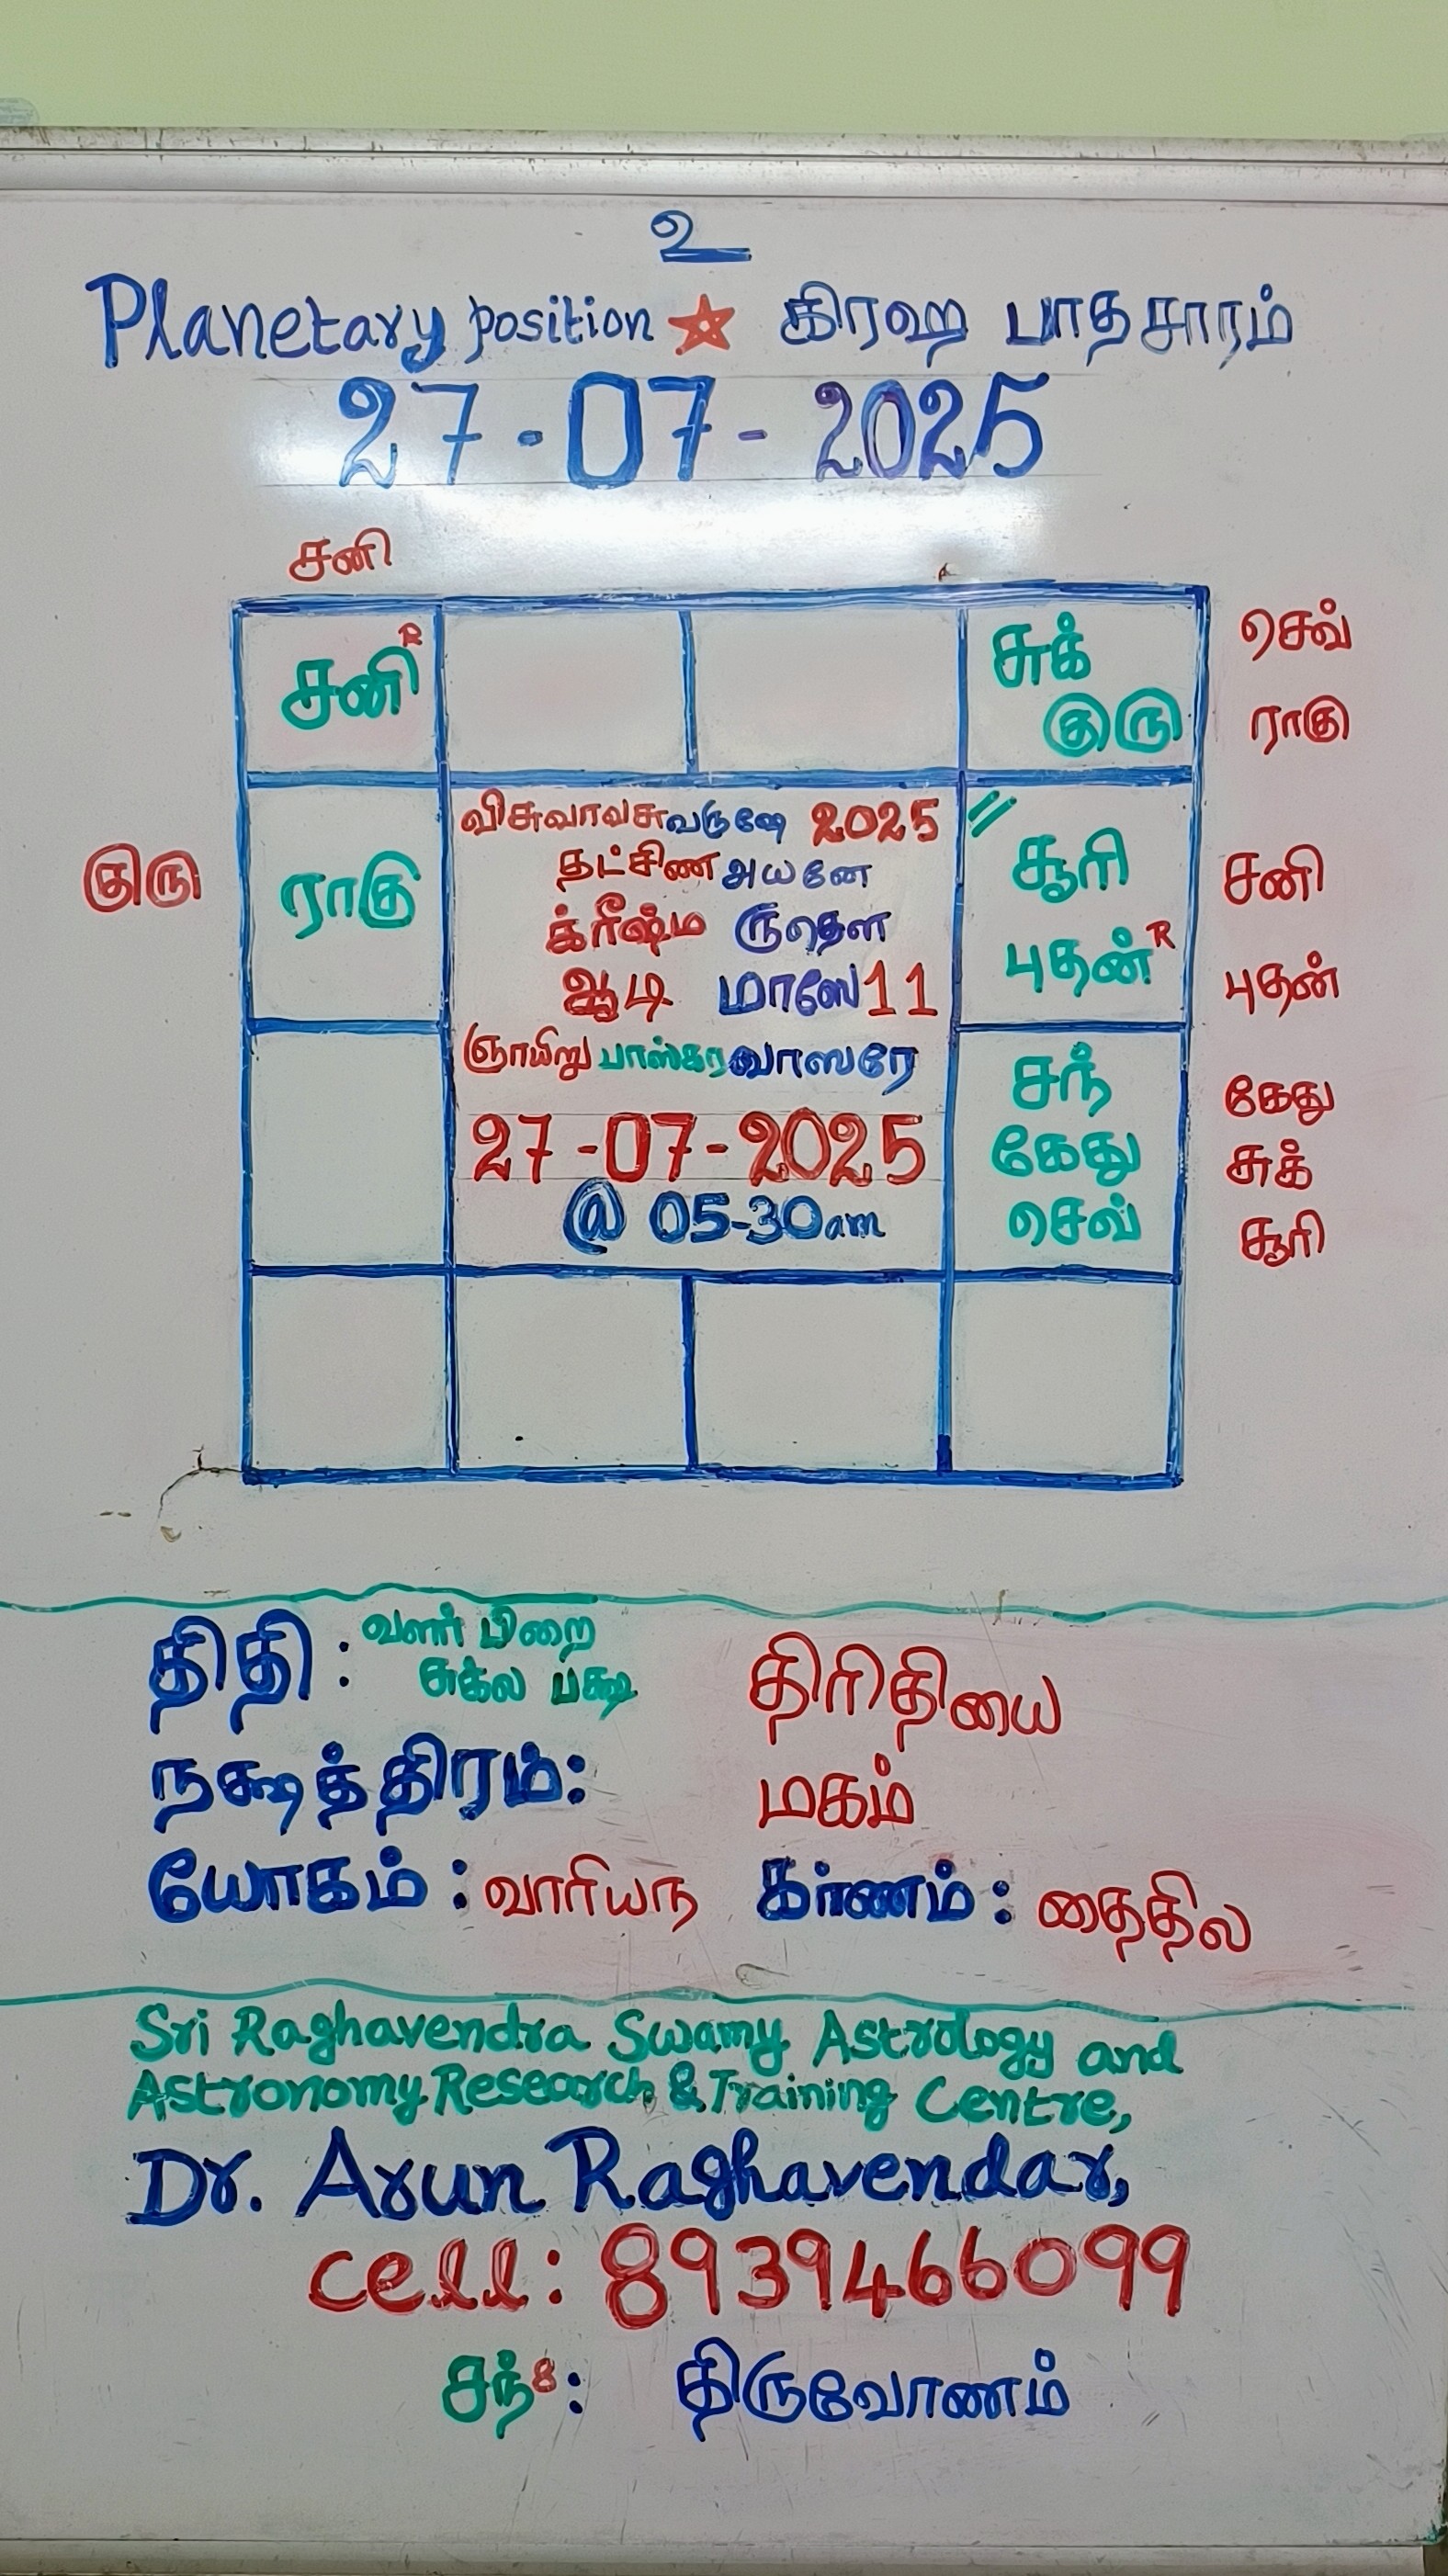 உ
Planetary position ★ கிரஹ பாதசாரம்
27-07-2025
சனி
சனி R
சுக்
குரு
செவ்
ராகு
குரு
ராகு
விசுவாவசுவருஷே 2025
தட்சிண அயனே
க்ரீஷ்ம ருதௌ
ஆடி மாஸே 11
ஞாயிறு பாஸ்கரவாஸரே
27-07-2025
@ 05-30am
//
சூரி
புதன் R
சனி
புதன்
சந்
கேது
செவ்
கேது
சுக்
சூரி
திதி : வளர் பிறை
சுக்ல பக்ஷ திரிதியை
நக்ஷத்திரம்: மகம்
யோகம் : வாரியந கர்ணம் : தைதில
Sri Raghavendra Swamy Astrology and
Astronomy Research & Training Centre,
Dr. Arun Raghavendar,
cell: 8939466099
சந் 8 : திருவோணம்